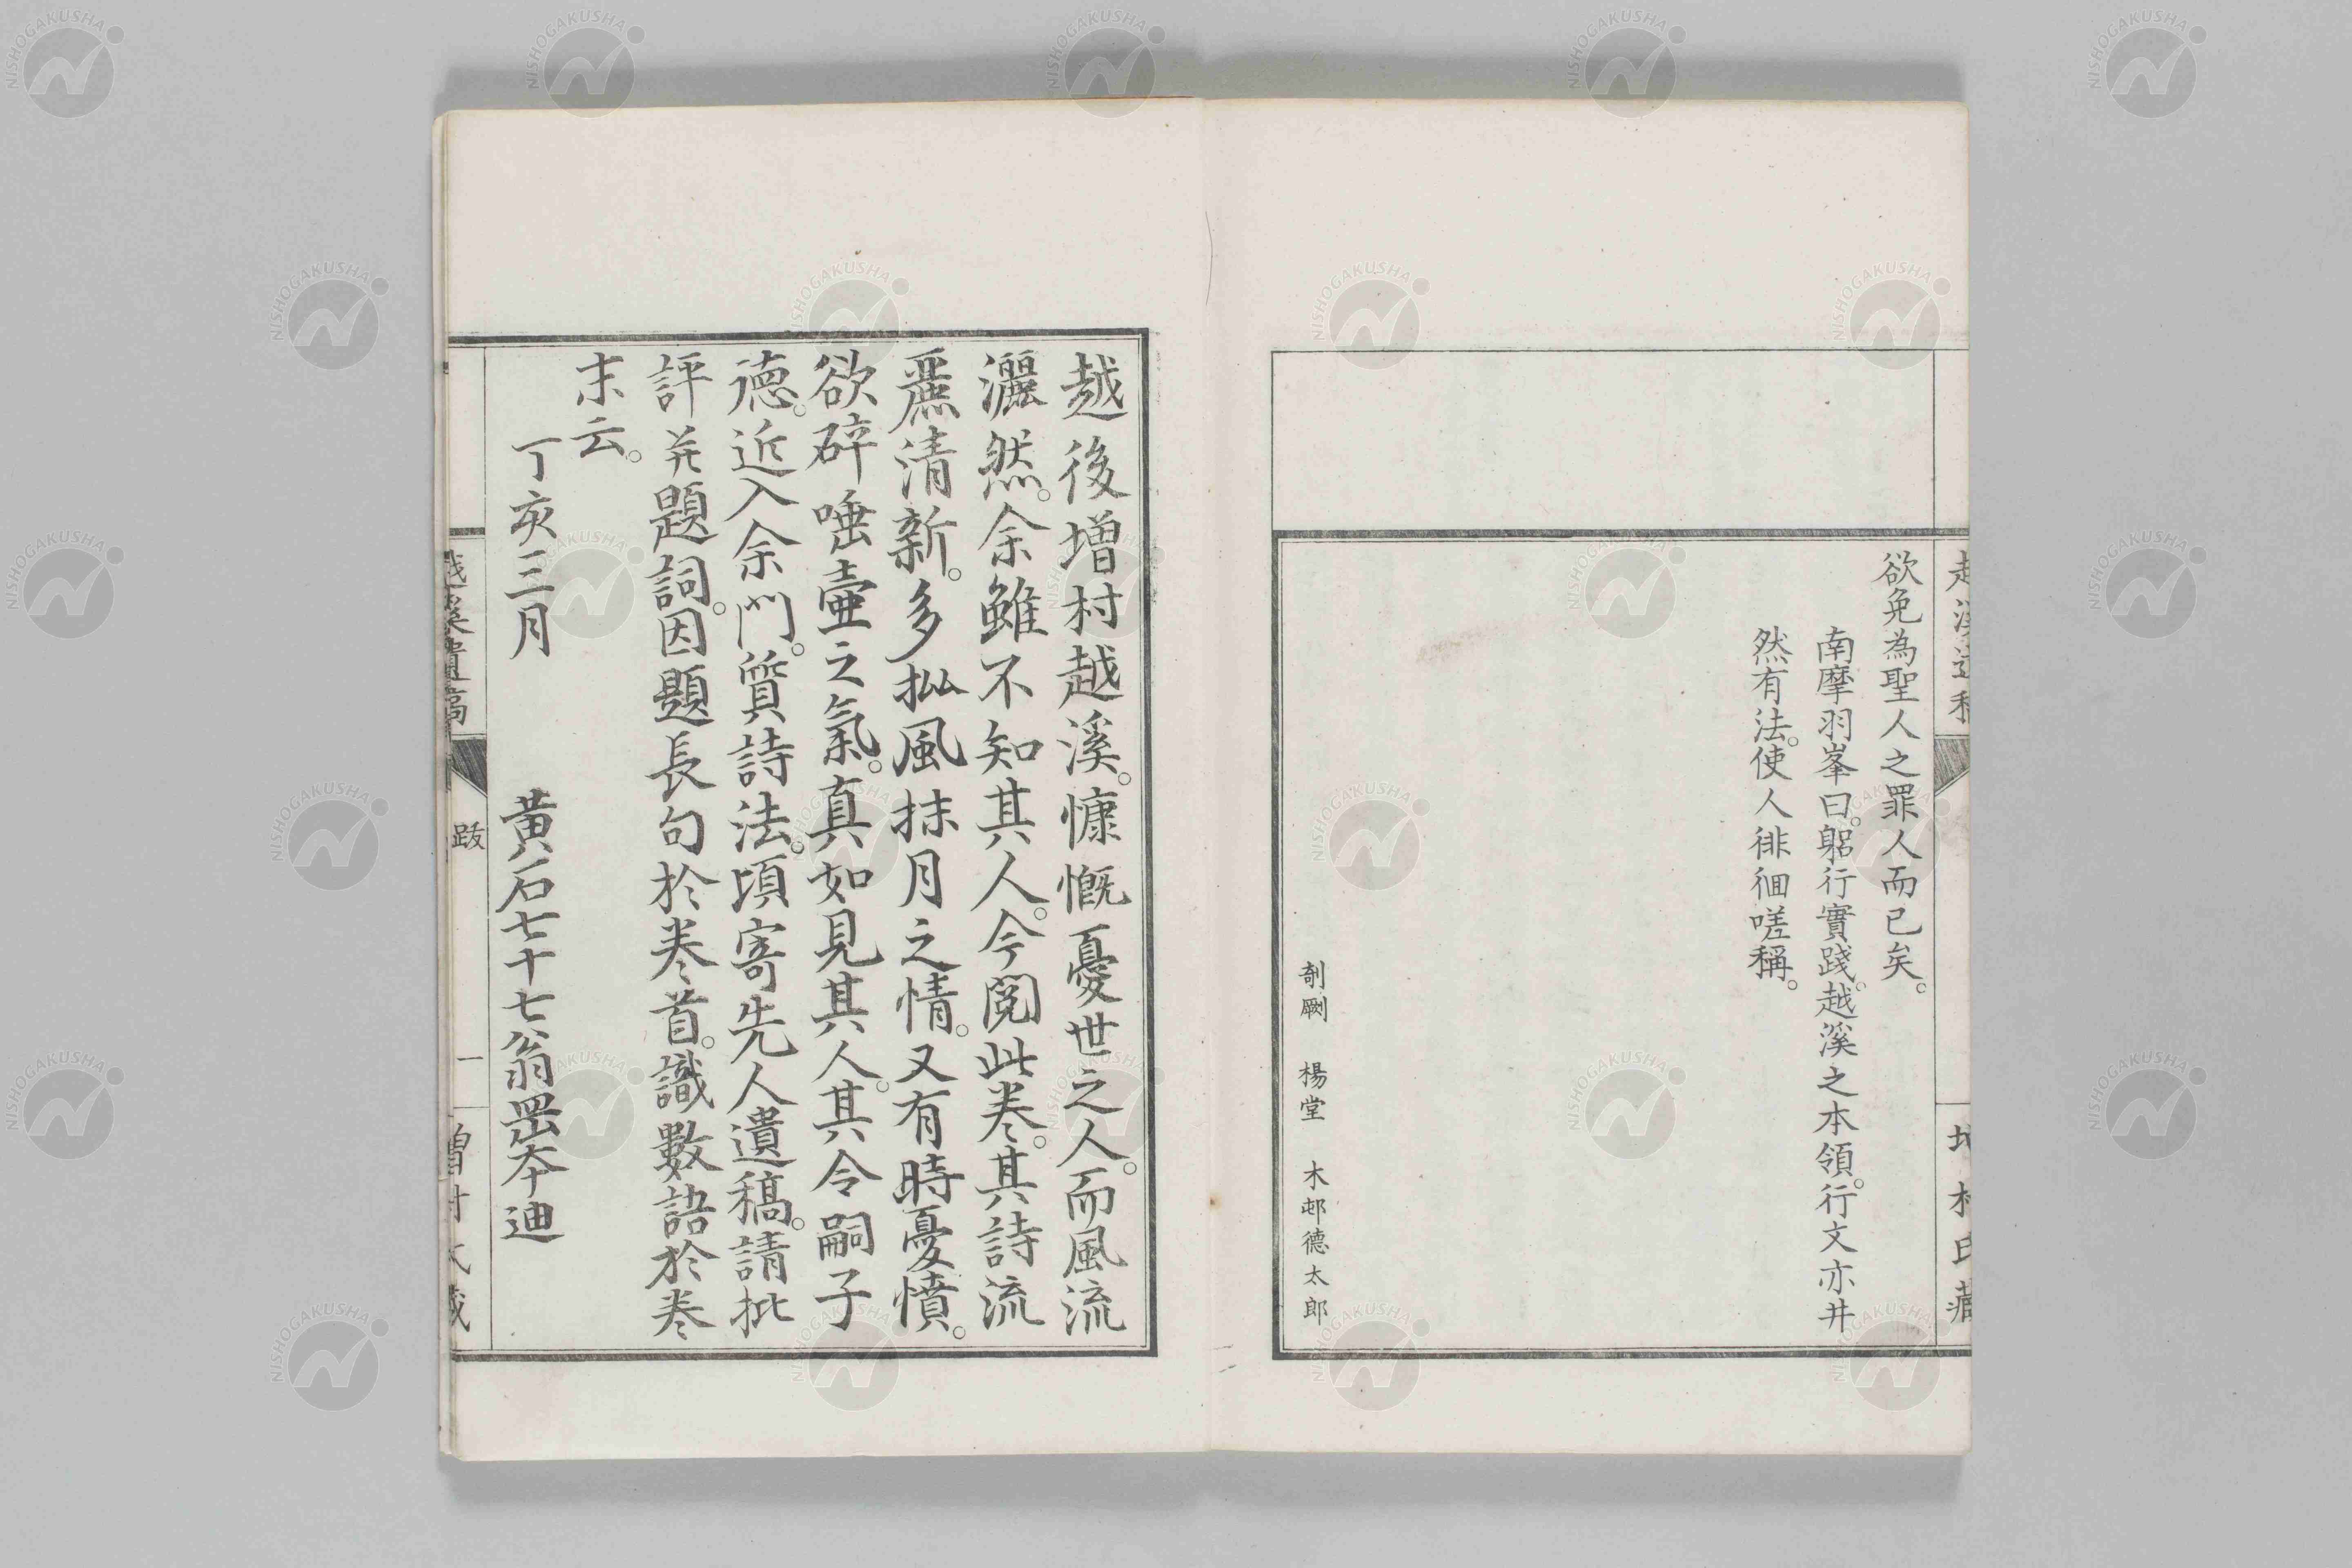 欲免為聖人之罪人而已矣。
南摩羽峯曰。躬行實踐。越溪之本領。行文亦井
然有法。使人徘徊嗟稱。
剞劂 楊堂 木邨德太郎
越後增村越溪。慷慨憂世之人。而風流
灑然。余雖不知其人。今閱此卷。其詩流
麗清新。多批風抹月之情。又有時憂憤。
欲碎唾壺之氣。真如見其人。其令嗣子
德。近入余門。質詩法。頃寄先人遺稿。請批
評并題詞。因題長句於卷首。識數語於卷
末云。
丁亥三月 黃石七十七翁岡本迪
越溪遺稿 跋 一
NISHOGAKUSHA